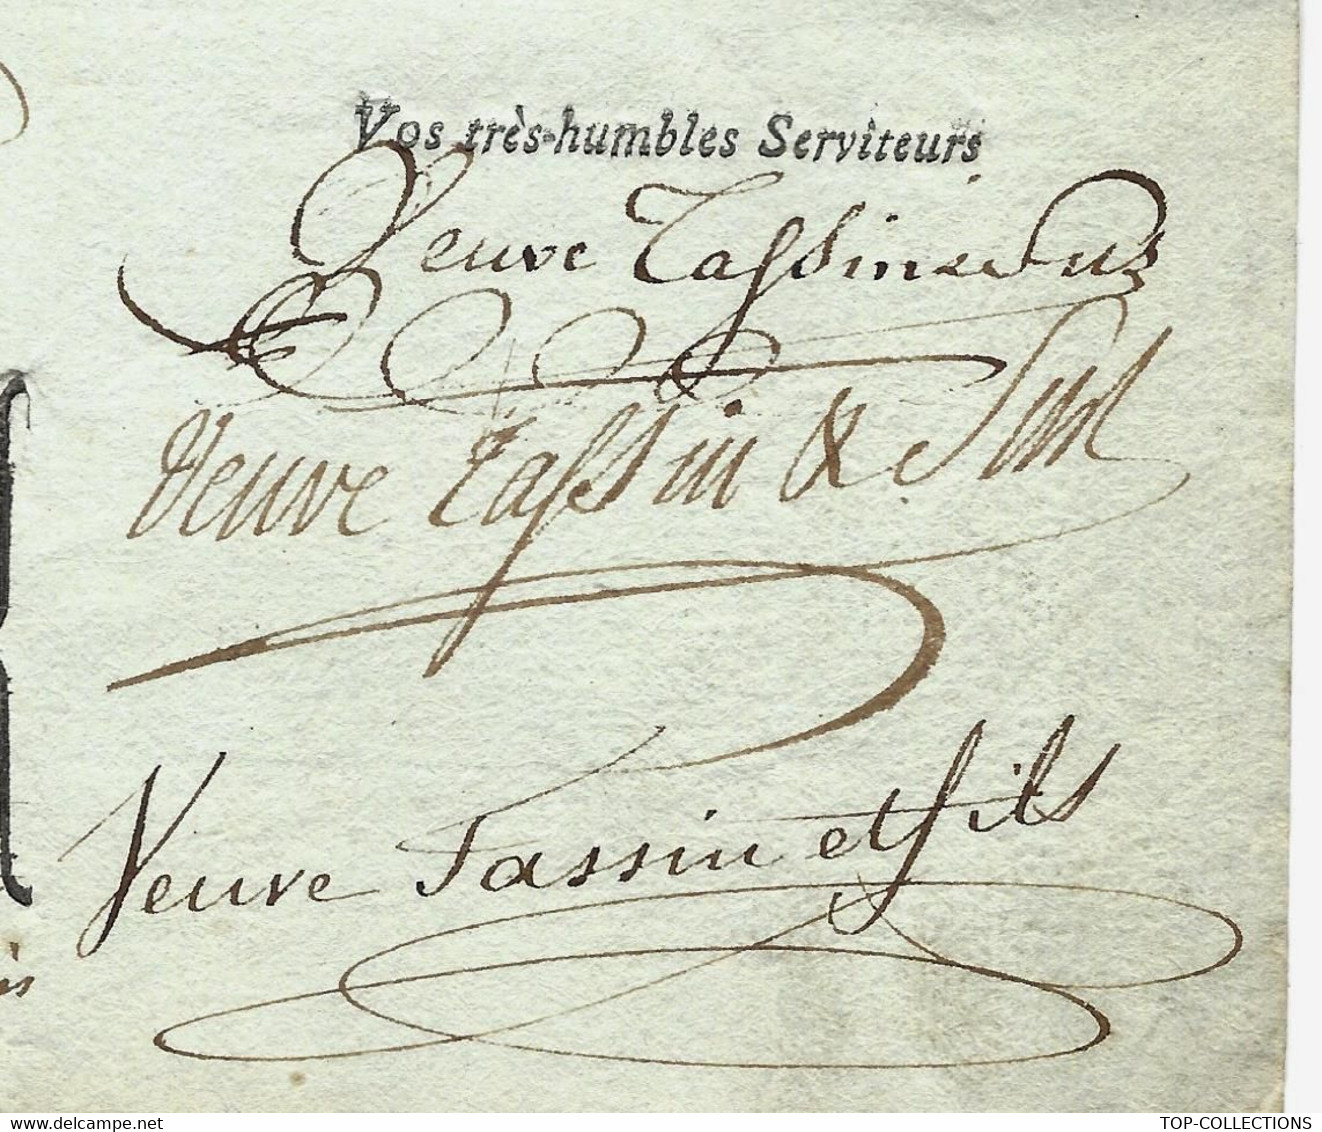 Vos très-humbles Serviteurs
Veuve Tassin et fils
Veuve Tassin & fils
Veuve Tassin et fils
ès
TOP-COLLECTIONS